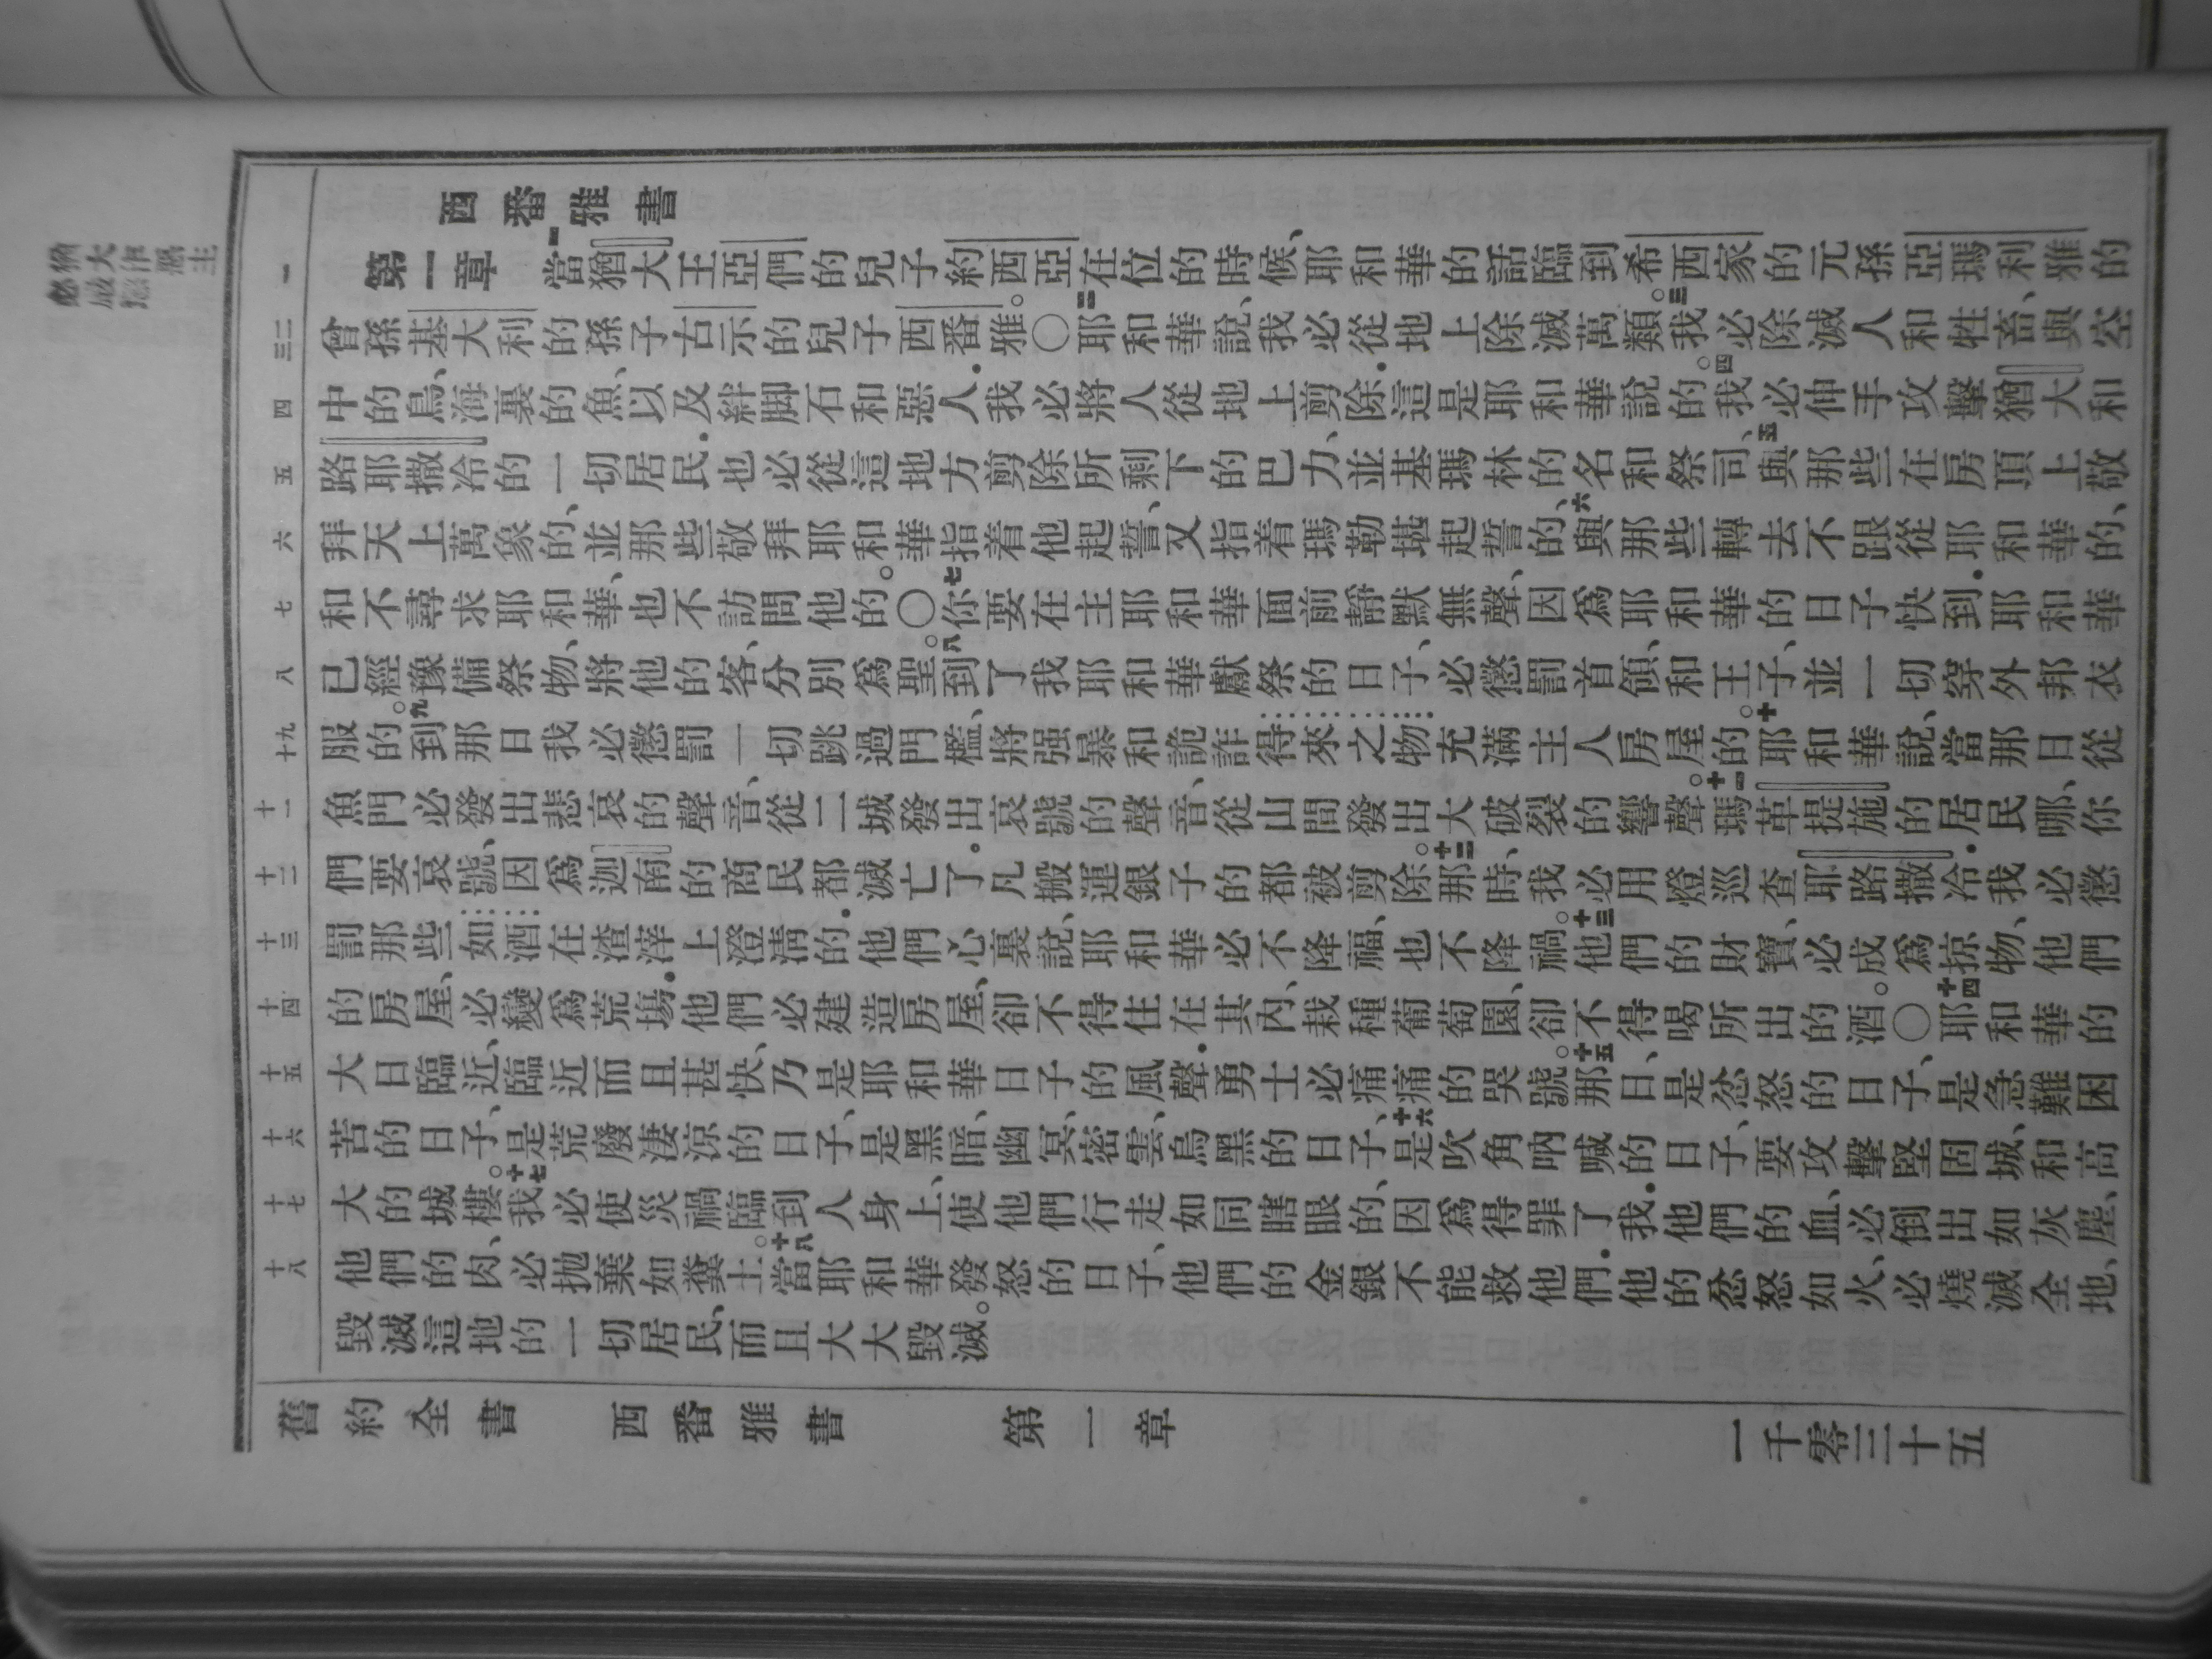 西番雅書
第一章 一當猶大王亞們的兒子約西亞在位的時候、耶和華的話臨到希西家的元孫亞瑪利雅的
曾孫基大利的孫子古示的兒子西番雅。○二耶和華說、我必從地上除滅萬類。三我必除滅人和牲畜、與空
中的鳥、海裏的魚、以及絆脚石和惡人.我必將人從地上剪除.這是耶和華說的。四我必伸手攻擊猶大和
路耶撒冷的一切居民.也必從這地方剪除所剩下的巴力、並基瑪林的名和祭司、五與那些在房頂上敬
拜天上萬象的、並那些敬拜耶和華指着他起誓、又指着瑪勒堪起誓的、六與那些轉去不跟從耶和華的、
和不尋求耶和華、也不訪問他的。○七你要在主耶和華面前靜默無聲、因爲耶和華的日子快到.耶和華
已經豫備祭物、將他的客、分別爲聖。八到了我耶和華獻祭的日子、必懲罰首領、和王子、並一切穿外邦衣
服的。九到那日我必懲罰一切跳過門檻、將强暴和詭詐得來之物充滿主人房屋的。十耶和華說、當那日從
魚門必發出悲哀的聲音、從二城發出哀號的聲音、從山間發出大破裂的響聲。十一瑪革提施的居民哪、你
們要哀號、因爲迦南的商民都滅亡了.凡搬運銀子的都被剪除。十二那時、我必用燈巡查耶路撒冷.我必懲
罰那些如酒在渣滓上澄清的.他們心裏說、耶和華必不降福、也不降禍。十三他們的財寶、必成爲掠物、他們
的房屋、必變爲荒場.他們必建造房屋、卻不得住在其內、栽種葡萄園、卻不得喝所出的酒。○十四耶和華的
大日臨近、臨近而且甚快、乃是耶和華日子的風聲.勇士必痛痛的哭號。十五那日、是忿怒的日子、是急難困
苦的日子、是荒廢淒涼的日子、是黑暗、幽冥、密雲、烏黑的日子、十六是吹角吶喊的日子、要攻擊堅固城、和高
大的城樓。十七我必使災禍臨到人身上、使他們行走如同瞎眼的、因爲得罪了我.他們的血、必倒出如灰塵、
他們的肉、必抛棄如糞土。十八當耶和華發怒的日子、他們的金銀不能救他們.他的忿怒如火、必燒滅全地、
毀滅這地的一切居民、而且大大毀滅。
舊約全書 西番雅書 第一章 一千零三十五
一
二三
四
五
六
七
八
九十
十一
十二
十三
十四
十五
十六
十七
十八